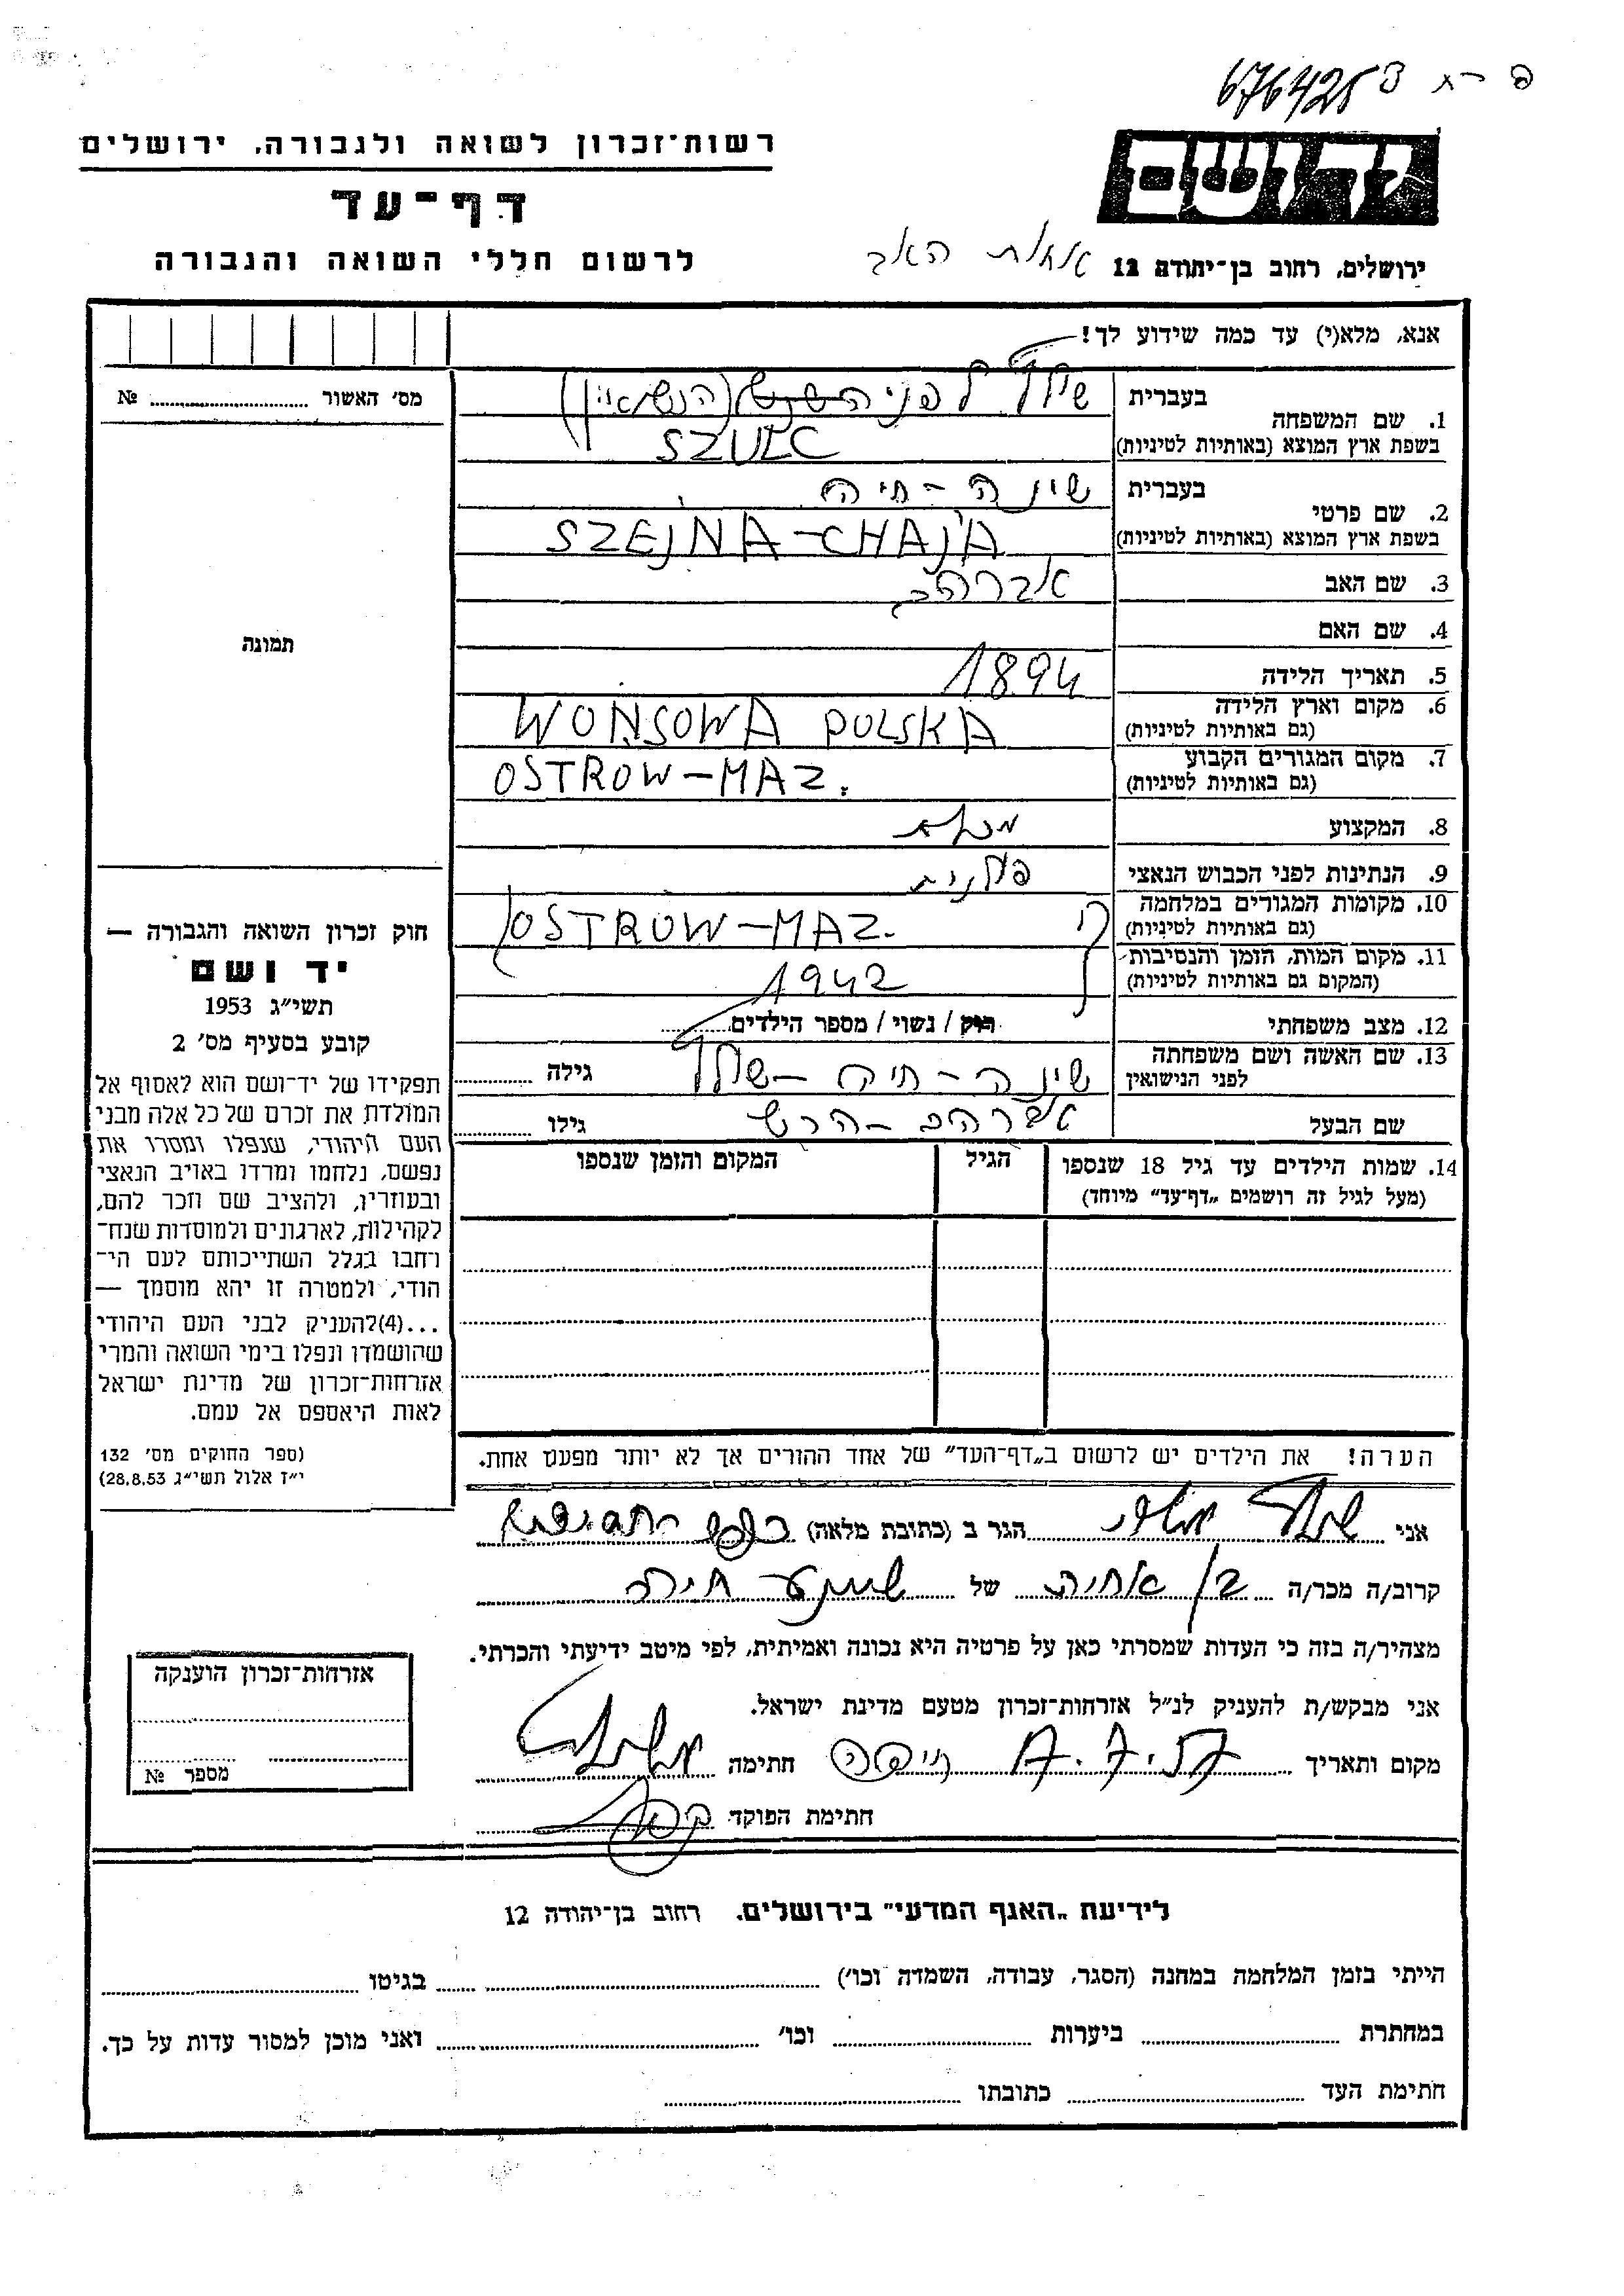 676425
יד ושם
רשות־זכרון לשואה ולגבורה, ירושלים
דף־עד
לרשום חללי השואה והגבורה
ירושלים, רחוב בן־יהודה 12
אנא, מלא(י) עד כמה שידוע לך!
מס׳ האשור ........ №
תמונה
1. שם המשפחה
בעברית שולץ לפני (הנשואין)
בשפת ארץ המוצא (באותיות לטיניות) SZULC
2. שם פרטי
בעברית שינה-חיה
בשפת ארץ המוצא (באותיות לטיניות) SZEJNA-CHAJA
3. שם האב אברהם
4. שם האם
5. תאריך הלידה 1894
6. מקום וארץ הלידה WONSOWA POLSKA
(גם באותיות לטיניות)
7. מקום המגורים הקבוע OSTROW-MAZ.
(גם באותיות לטיניות)
8. המקצוע
9. הנתינות לפני הכבוש הנאצי פולנית
10. מקומות המגורים במלחמה OSTROW-MAZ.
(גם באותיות לטיניות)
11. מקום המות, הזמן והנסיבות 1942
(המקום גם באותיות לטיניות)
12. מצב משפחתי רווק / נשוי / מספר הילדים........
13. שם האשה ושם משפחתה שינה-חיה-שולץ גילה ........
לפני הנישואין
שם הבעל אברהם-הרש גילו ........
14. שמות הילדים עד גיל 18 שנספו הגיל המקום והזמן שנספו
(מעל לגיל זה רושמים „דף־עד” מיוחד)
הערה! את הילדים יש לרשום ב„דף־העד” של אחד ההורים אך לא יותר מפעם אחת.
חוק זכרון השואה והגבורה —
יד ושם
תשי״ג 1953
קובע בסעיף מס׳ 2
תפקידו של יד־ושם הוא לאסוף אל
המולדת את זכרם של כל אלה מבני
העם היהודי, שנפלו ומסרו את
נפשם, נלחמו ומרדו באויב הנאצי
ובעוזריו, ולהציב שם וזכר להם,
לקהילות, לארגונים ולמוסדות שנח־
רבו בגלל השתייכותם לעם הי־
הודי, ולמטרה זו יהא מוסמך —
...(4)להעניק לבני העם היהודי
שהושמדו ונפלו בימי השואה והמרי
אזרחות־זכרון של מדינת ישראל
לאות היאספם אל עמם.
(ספר החוקים מס׳ 132
י״ז אלול תשי״ג 28.8.53)
אני ........ הגר ב (כתובת מלאה) ........
קרוב/ה מכר/ה בן אחיה של שיינע חיה
מצהיר/ה בזה כי העדות שמסרתי כאן על פרטיה היא נכונה ואמיתית, לפי מיטב ידיעתי והכרתי.
אני מבקש/ת להעניק לנ״ל אזרחות־זכרון מטעם מדינת ישראל.
מקום ותאריך חיפה חתימה
חתימת הפוקד
אזרחות־זכרון הוענקה
מספר №
לידיעת „האגף המדעי” בירושלים. רחוב בן־יהודה 12
הייתי בזמן המלחמה במחנה (הסגר, עבודה, השמדה וכו׳) ........ בגיטו ........
במחתרת ........ ביערות ........ וכו׳ ........ ואני מוכן למסור עדות על כך.
חתימת העד ........ כתובתו ........